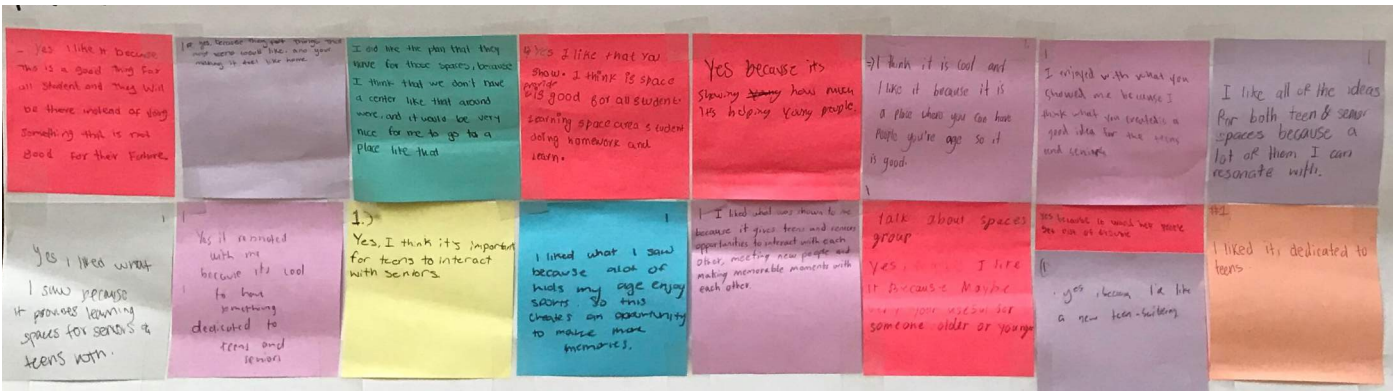 - Yes I like it because
This is a good thing for
all student and They Will
be there instead of doing
Something that is not
good for their Future.
yes because they put things that
would like, and your
making it feel like home
I did like the plan that they
have for those spaces, because
I think that we don't have
a center like that around
here, and it would be very
nice for me to go to a
place like that
Yes I like that you
show. I think is space
provide
is good for all student.
Learning space area student
doing homework and
learn.
Yes because its
showing how much
its helping young people.
I think it is cool and
I like it because it is
a place where you can have
people you're age so it
is good.
I enjoyed with what you
showed me because I
think what you created is a
good idea for the teens
and seniors
I like all of the ideas
for both teen & senior
spaces because a
lot of them I can
resonate with.
Yes, I liked what
I saw because
it provides learning
spaces for seniors &
teens both.
Yes it resonated
with me
because its cool
to have
something
dedicated to
teens and
seniors
1.)
Yes, I think it's important
for teens to interact
with seniors.
I liked what I saw
because alot of
kids my age enjoy
sports. So this
creates an opportunity
to make more
memories.
I liked what was shown to me
because it gives teens and seniors
opportunities to interact with each
other, meeting new people and
making memorable moments with
each other.
talk about spaces
group
Yes, I like
it Because Maybe
useful for
someone older or younger
Yes because it would
yes, because I'd like
a new teen-building
#1
I liked it, dedicated to
teens